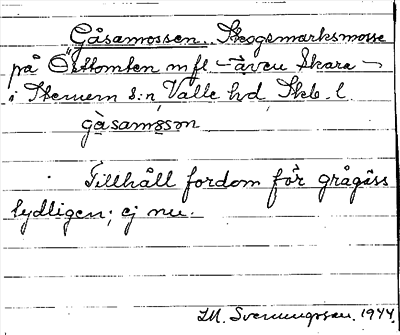 Gåsamossen. Skogsmarksmosse
på Östtomten m fl – även Skara –
i Stenum s:n, Valle hd Skb. l.
gåsamåsən
Tillhåll fordom för grågäss
tydligen; ej nu.
S.M. Svenungsson. 1944.